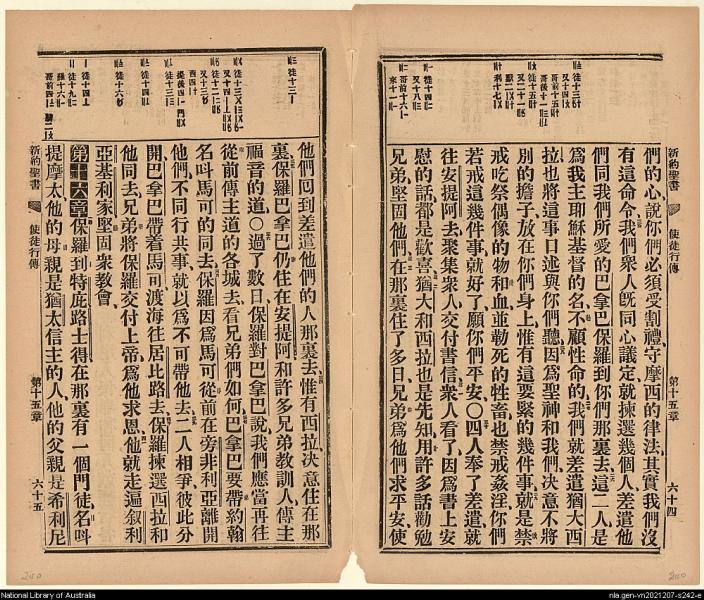 新約聖書 使徒行傳 第十五章 六十四
們的心說你們必須受割禮守摩西的律法其實我們沒
有這命令我們衆人旣同心議定就揀選幾個人差遣他
們同我們所愛的巴拿巴保羅到你們那裏去這二人是
爲我主耶穌基督的名不顧性命的我們就差遣猶大西
拉也將這事口述與你們聽因爲聖神和我們決意不將
別的擔子放在你們身上惟有這要緊的幾件事就是禁
戒吃祭偶像的物和血並勒死的牲畜也禁戒姦淫你們
若戒這幾件事就好了願你們平安〇四人奉了差遣就
往安提阿去聚集衆人交付書信衆人看了因爲書上安
慰的話都是歡喜猶大和西拉也是先知用許多話勸勉
兄弟堅固他們在那裏住了多日兄弟爲他們求平安使
他們回到差遣他們的人那裏去惟有西拉決意住在那
裏保羅巴拿巴仍住在安提阿和許多兄弟教訓人傳主
福音的道〇過了數日保羅對巴拿巴說我們應當再往
從前傳主道的各城去看兄弟們如何巴拿巴要帶約翰
名呌馬可的同去保羅因爲馬可從前在旁非利亞離開
他們不同行共事就以爲不可帶他去二人相爭彼此分
開巴拿巴帶着馬可渡海往居比路去保羅揀選西拉和
他同去兄弟將保羅交付上帝爲他求恩他就走遍叙利
亞基利家堅固衆教會
第十六章保羅到特庇路士得在那裏有一個門徒名呌
提摩太他的母親是猶太信主的人他的父親是希利尼
新約聖書 使徒行傳 第十五章 六十五
National Library of Australia
nla.gen-vn2021207-s242-e